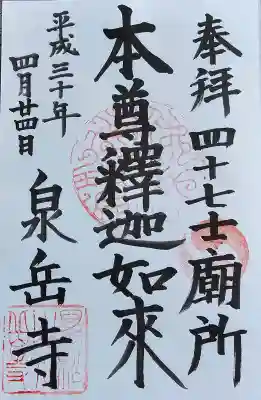 奉拝四十七士廟所
本尊釋迦如來
平成三十年
四月廿四日
泉岳寺